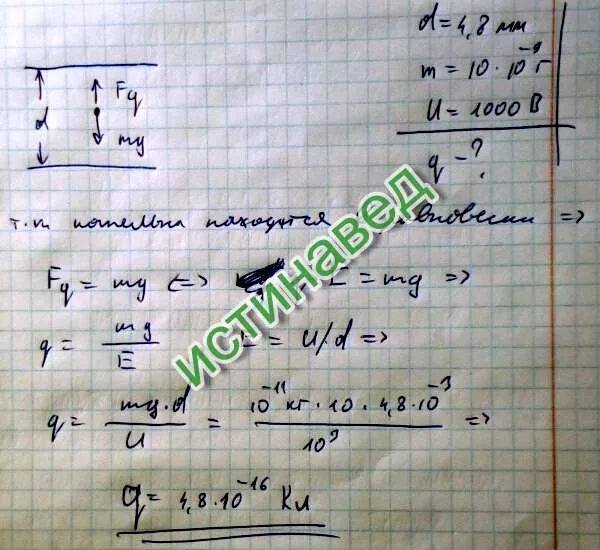 d = 4,8 мм
m = 10·10⁻⁹ г
U = 1000 В
q - ?
d
Fq
mg
т.к. капелька находится
=>
Fq = mg <=> E = mg =>
q = mg/E
E = U/d =>
q = mg·d/U = 10⁻¹¹ кг·10·4,8·10⁻³/10³ =>
q = 4,8·10⁻¹⁶ Кл
истинавед